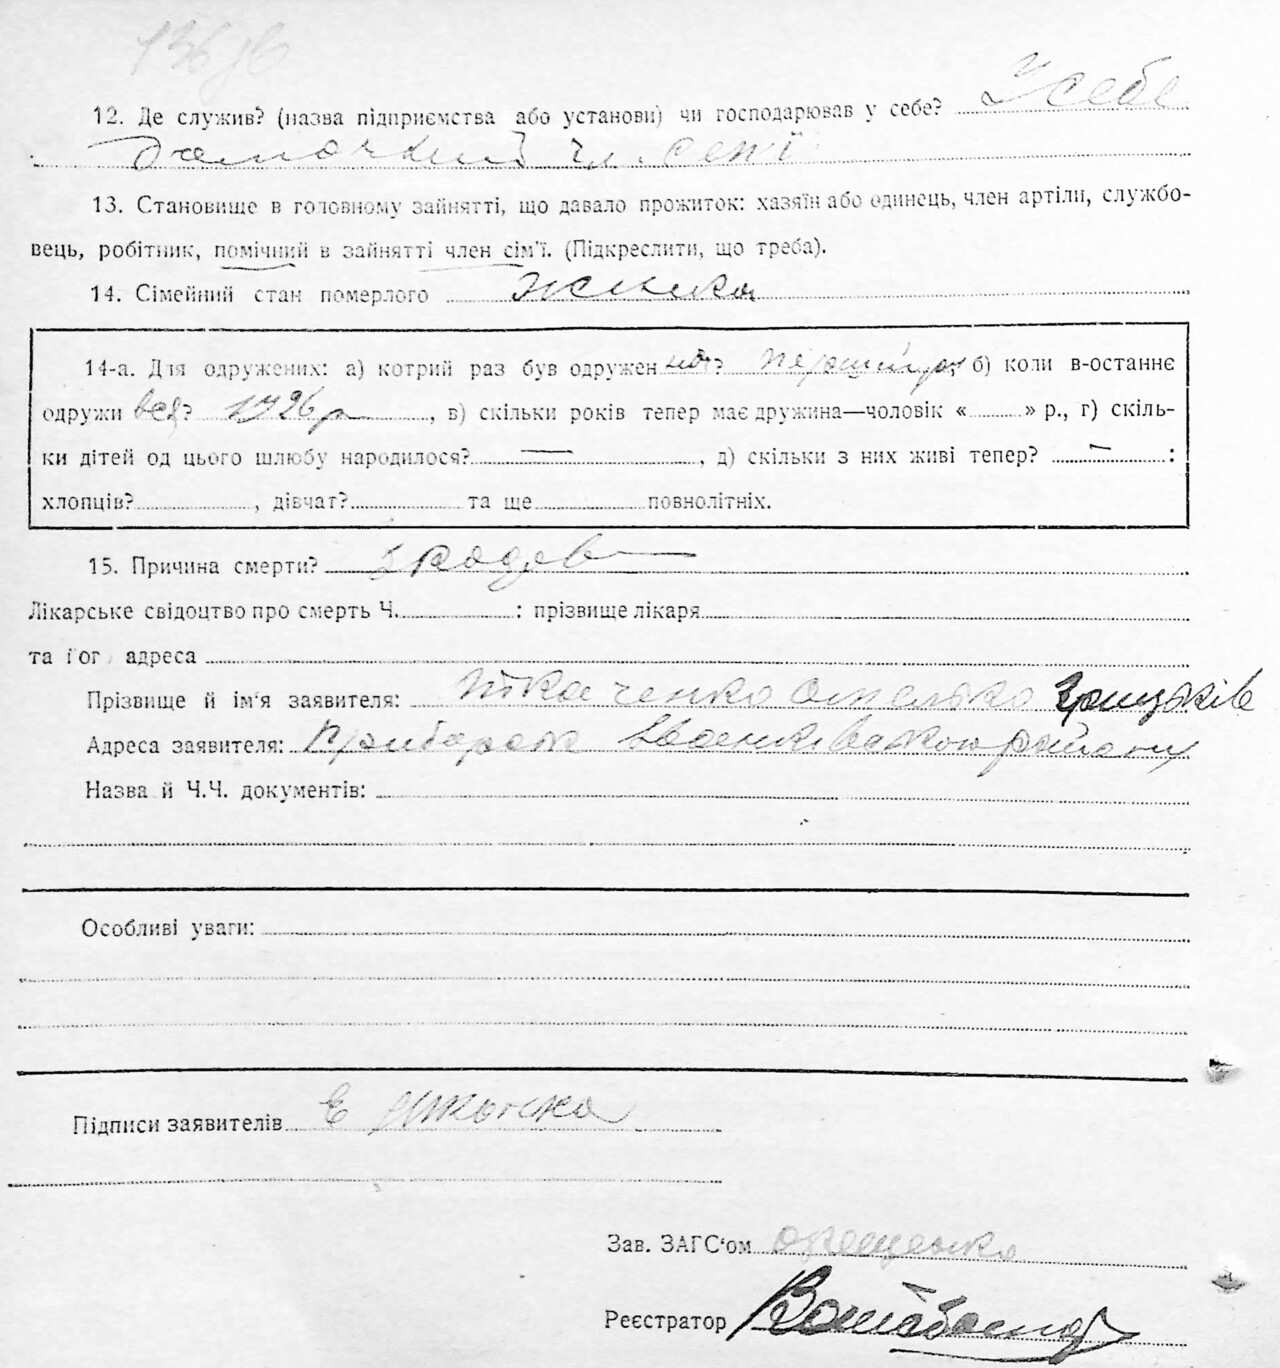 12. Де служив? (назва підприємства або установи) чи господарював у себе? У себе
чл. сем'ї
13. Становище в головному зайнятті, що давало прожиток: хазяїн або одинець, член артіли, службо-
вець, робітник, помічний в зайнятті член сім'ї. (Підкреслити, що треба).
14. Сімейний стан померлого жінка
14-а. Для одружених: а) котрий раз був одружен на? перший раз б) коли в-останнє
одружи вся? 1926 р , в) скільки років тепер має дружина—чоловік « » р., г) скіль-
ки дітей од цього шлюбу народилося? — , д) скільки з них живі тепер? — :
хлопців? , дівчат? та ще повнолітніх.
15. Причина смерти?
Лікарське свідоцтво про смерть Ч. : прізвище лікаря
та його адреса
Прізвище й ім'я заявителя: Ткаченко Омелько Грицьків
Адреса заявителя: району
Назва й Ч.Ч. документів:
Особливі уваги:
Підписи заявителів Е
Зав. ЗАГС'ом
Реєстратор